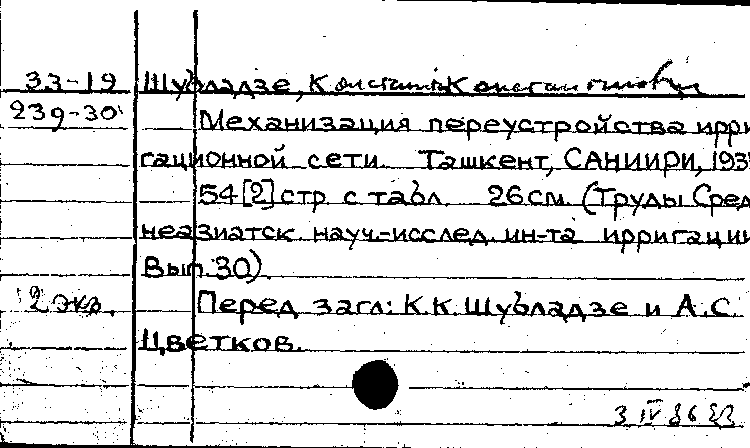 33-19 Шубладзе, Константин Константинович
239-30 Механизация переустройства ирри
гационной сети. Ташкент, САНИИРИ, 193
54[2] стр. с табл. 26 см. (Труды Сред
неазиатск. науч.-исслед. ин-та ирригации
Вып. 30).
2 экз. Перед загл: К.К. Шубладзе и А.С.
Цветков.
3 IV 86